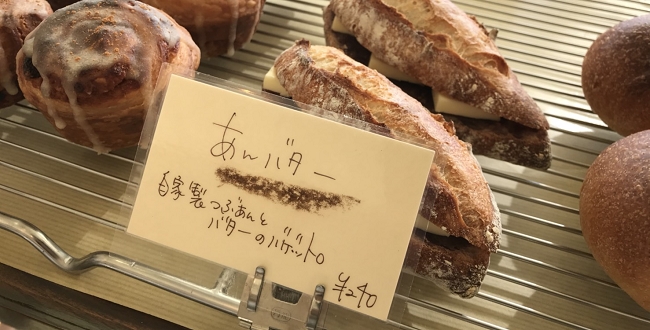 あんバター
自家製つぶあんと
バターのバゲット。
¥240